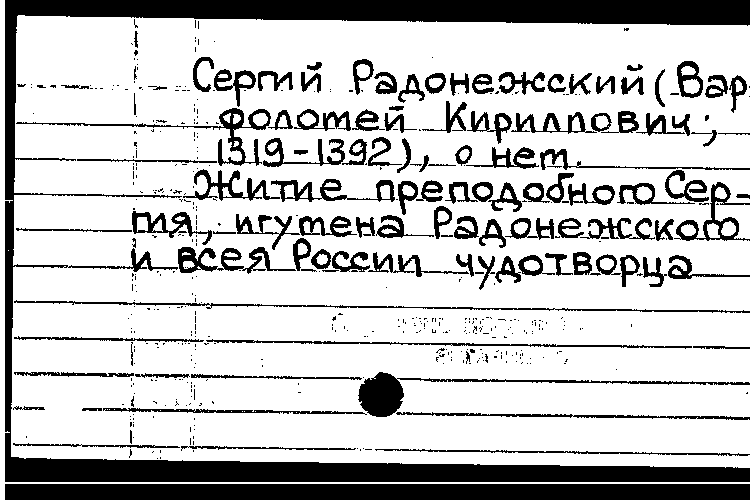 Сергий Радонежский (Вар
фоломей Кириллович;
1319-1392), о нем.
Житие преподобного Сер-
гия, игумена Радонежского
и всея России чудотворца